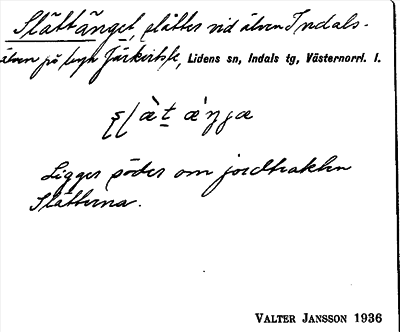 Slättänget, slåtter vid älven Indals-
älven på byn Järkvitsle, Lidens sn, Indals tg, Västernorrl. l.
Ligger söder om jordtrakten
Slätterna.
VALTER JANSSON 1936